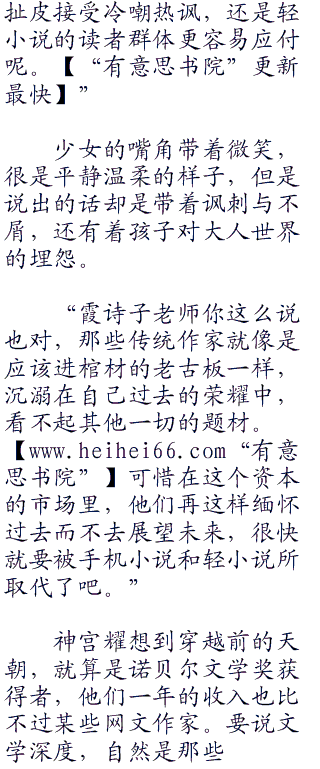 扯皮接受冷嘲热讽，还是轻
小说的读者群体更容易应付
呢。【“有意思书院”更新
最快】”
少女的嘴角带着微笑，
很是平静温柔的样子，但是
说出的话却是带着讽刺与不
屑，还有着孩子对大人世界
的埋怨。
“霞诗子老师你这么说
也对，那些传统作家就像是
应该进棺材的老古板一样，
沉溺在自己过去的荣耀中，
看不起其他一切的题材。
【www.heihei66.com“有意
思书院”】可惜在这个资本
的市场里，他们再这样缅怀
过去而不去展望未来，很快
就要被手机小说和轻小说所
取代了吧。”
神宫耀想到穿越前的天
朝，就算是诺贝尔文学奖获
得者，他们一年的收入也比
不过某些网文作家。要说文
学深度，自然是那些